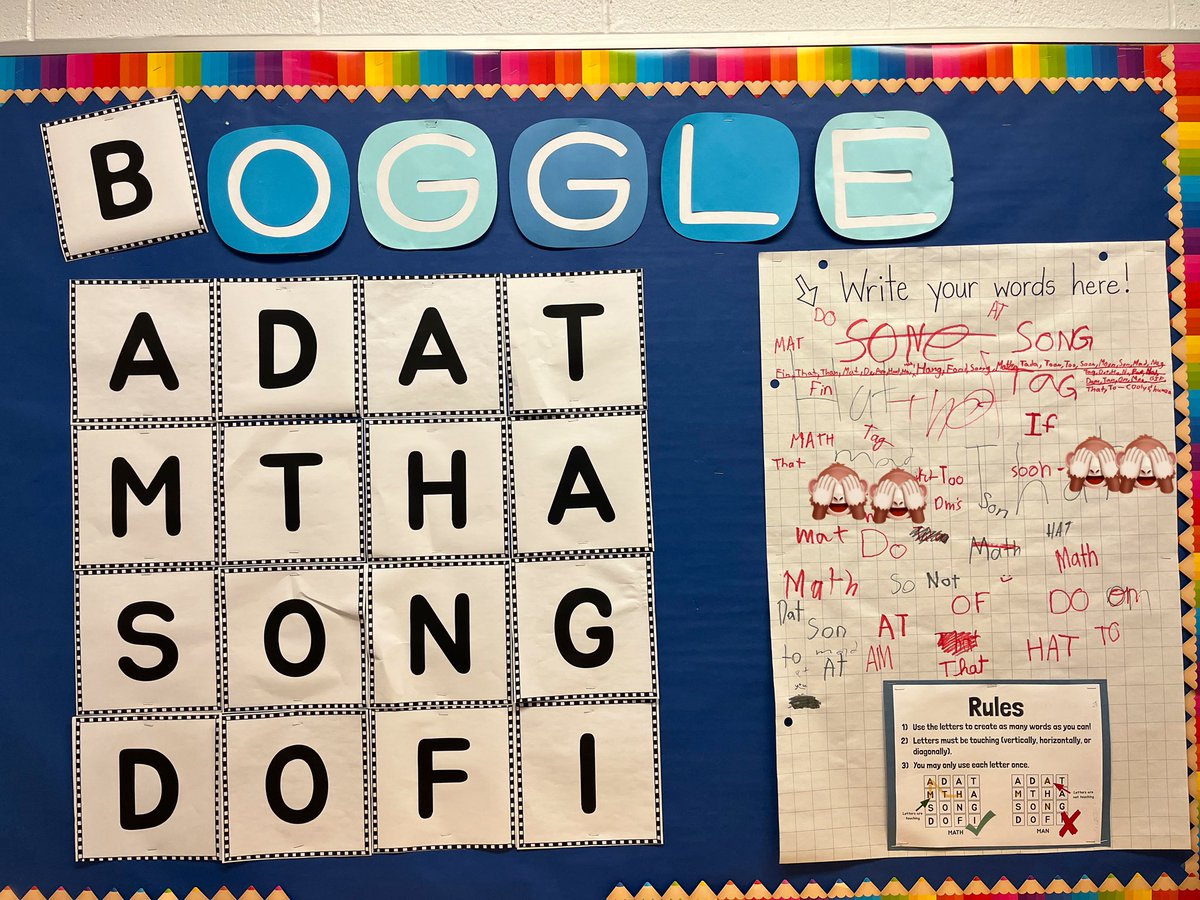 BOGGLE
A D A T
M T H A
S O N G
D O F I
Write your words here!
DO
AT
MAT
SONE
SONG
Fin, That, Than, Mat, Do,
Hang,
Tada,
Too, Soon,
TaG
Fin
Hat
If
MATH
Tag
mad
That
Too
sooh
Dm's
Son
mat
Do
Math
HAT
Math
Math
So
Not
OF
DO
om
Dat
Son
AT
to
AT
AM
That
HAT
TO
Rules
1) Use the letters to create as many words as you can!
2) Letters must be touching (vertically, horizontally, or
diagonally).
3) You may only use each letter once.
A D A T
M T H A
S O N G
D O F I
Letters are
touching
MATH
A D A T
M T H A
S O N G
D O F I
Letters are
not touching
MAN